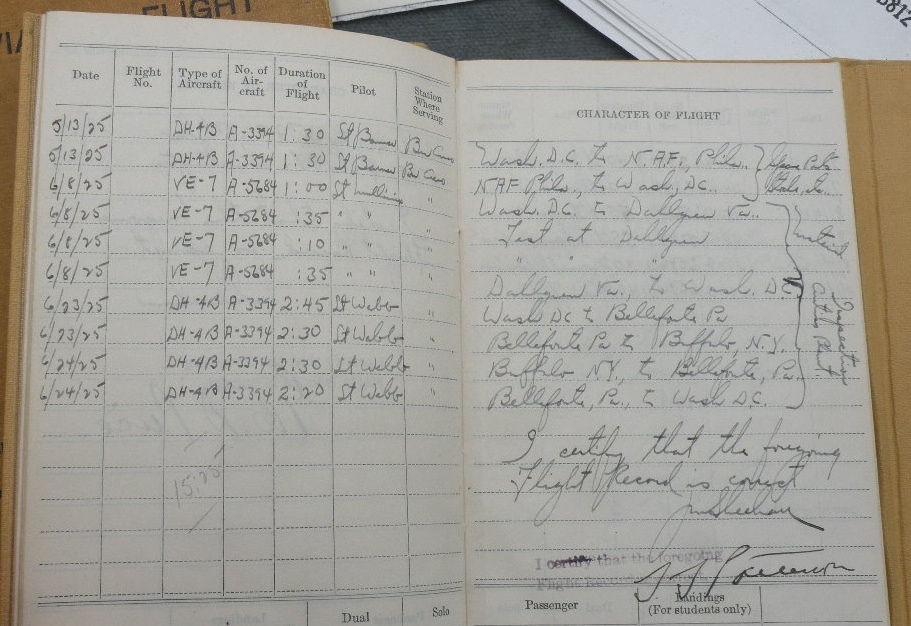 FLIGHT
Date Flight No. Type of Aircraft No. of Air-craft Duration of Flight Pilot Station Where Serving
5/13/25 DH-4B A-3394 1:30
5/13/25 DH-4B A-3394 1:30
6/8/25 VE-7 A-5684 1:00 "
6/8/25 VE-7 A-5684 :35 " " "
6/8/25 VE-7 A-5684 :10 " " "
6/8/25 VE-7 A-5684 :35 " " "
6/23/25 DH-4B A-3394 2:45 Lt Webb "
6/23/25 DH-4B A-3394 2:30 Lt Webb "
6/24/25 DH-4B A-3394 2:30 Lt Webb "
6/24/25 DH-4B A-3394 2:20 Lt Webb "
Dual Solo
CHARACTER OF FLIGHT
Wash. D.C. to N.A.F., Phila.
N.A.F. Phila., to Wash, D.C.
Wash. D.C. to Dahlgren Va.
Test at Dahlgren
" " "
Dahlgren Va., to Wash. D.C.
Wash DC to Bellefonte Pa
Bellefonte Pa to Buffalo, N.Y.
Buffalo N.Y., to Bellefonte, Pa.
Bellefonte, Pa., to Wash D.C.
Inspection
I certify that the foregoing
Flight Record is correct
I certify that the foregoing
Flight
Passenger Landings
(For students only)